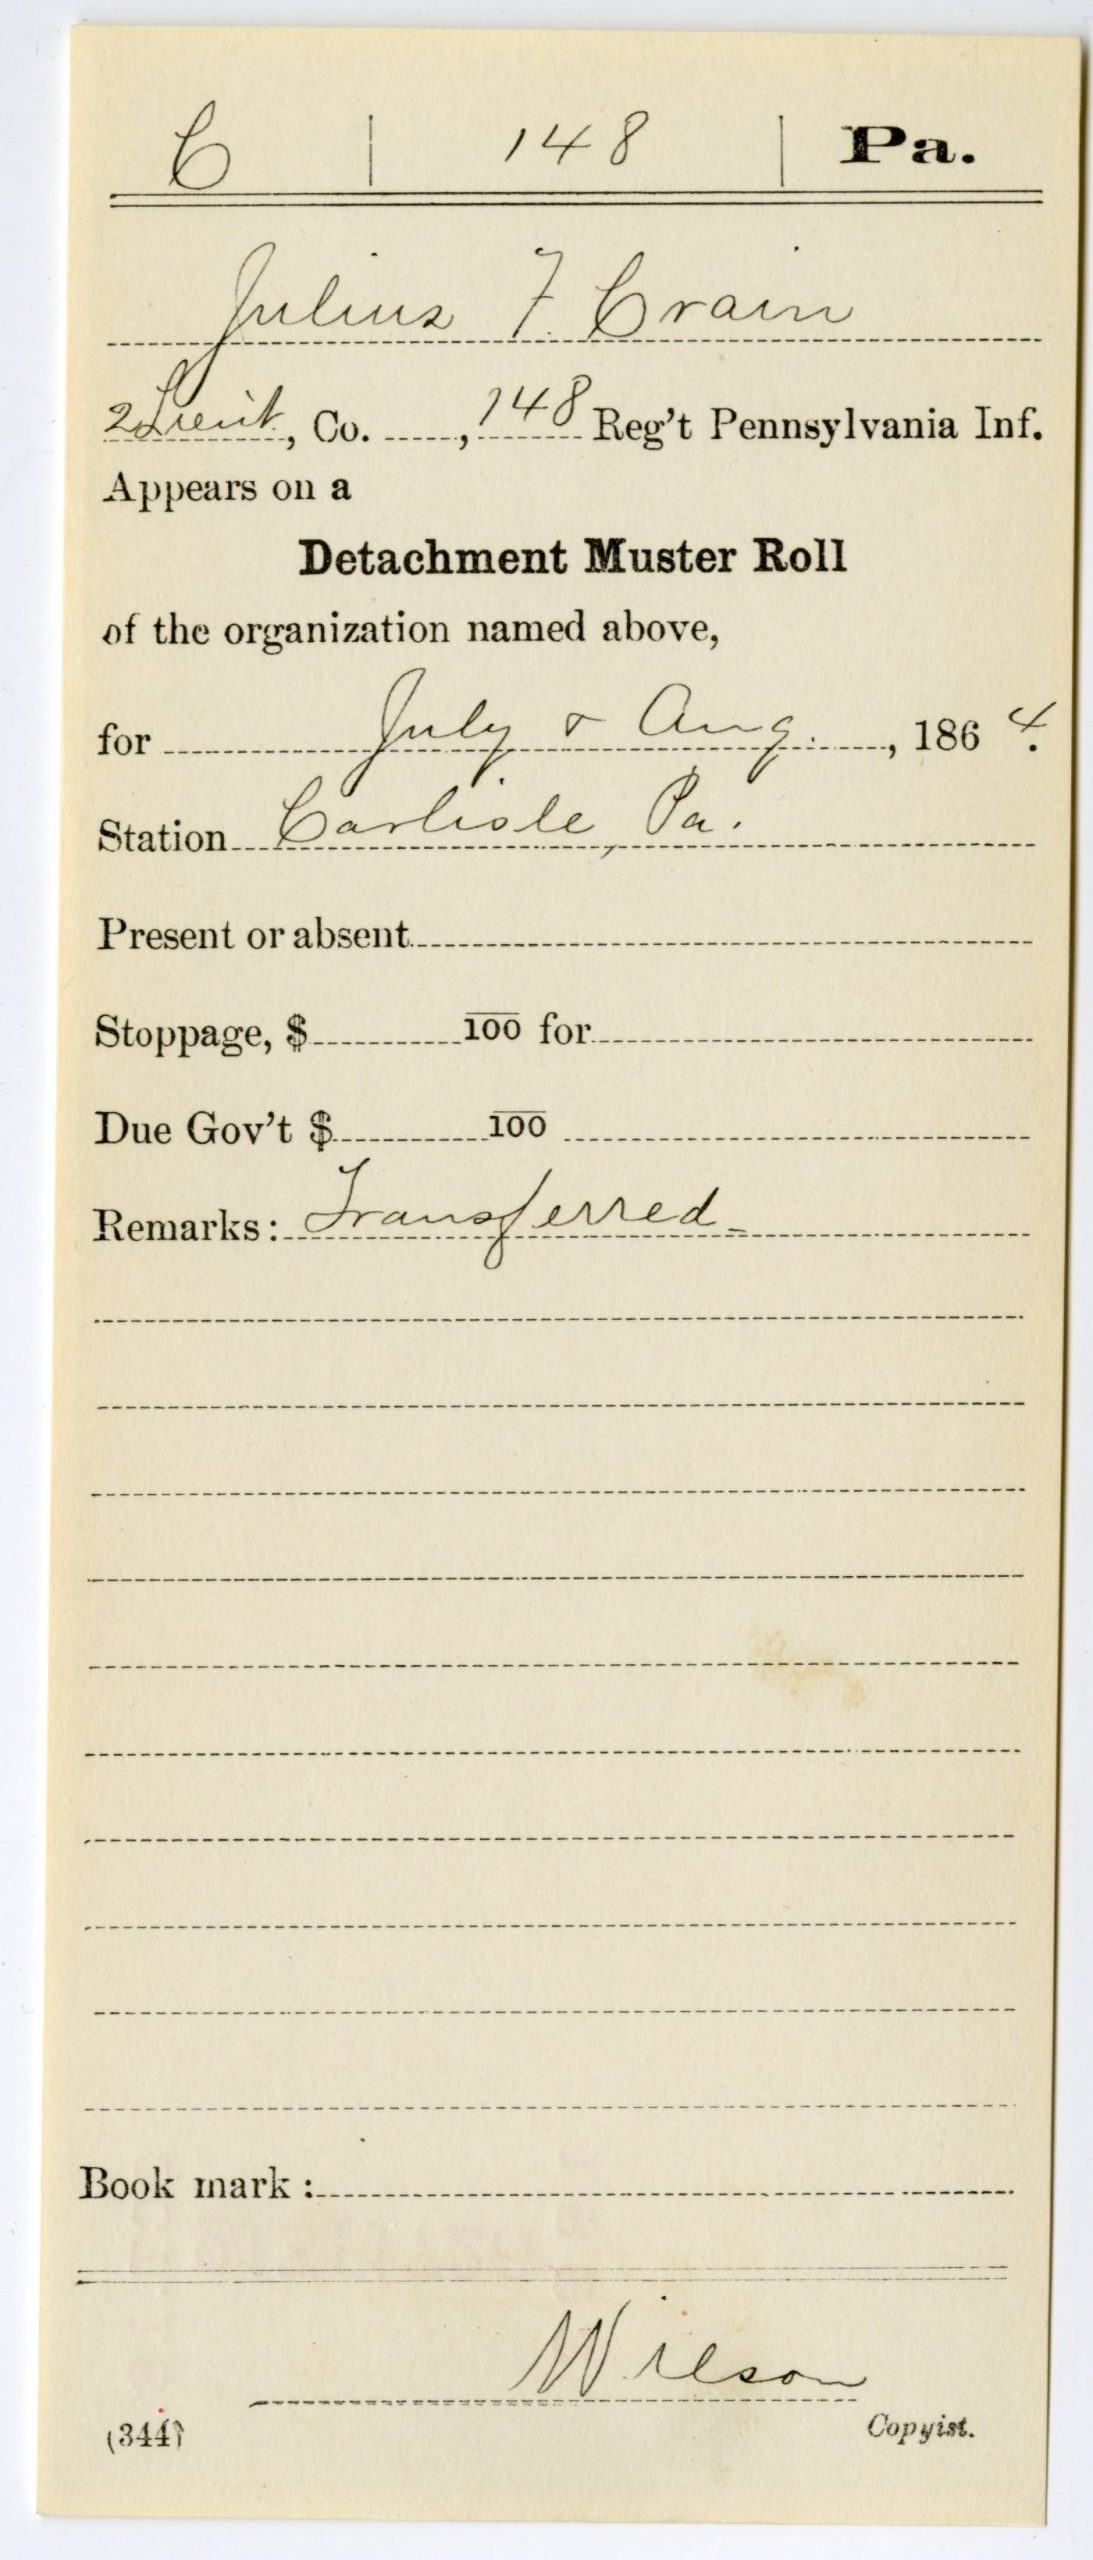 C | 148 | Pa.
Julius F. Crain
2 Lieut., Co. ......, 148 Reg't Pennsylvania Inf.
Appears on a
Detachment Muster Roll
of the organization named above,
for July & Aug., 1864.
Station Carlisle, Pa.
Present or absent
Stoppage, $ 100 for
Due Gov't $ 100
Remarks: Transferred
Book mark:
Wilson
(344) Copyist.